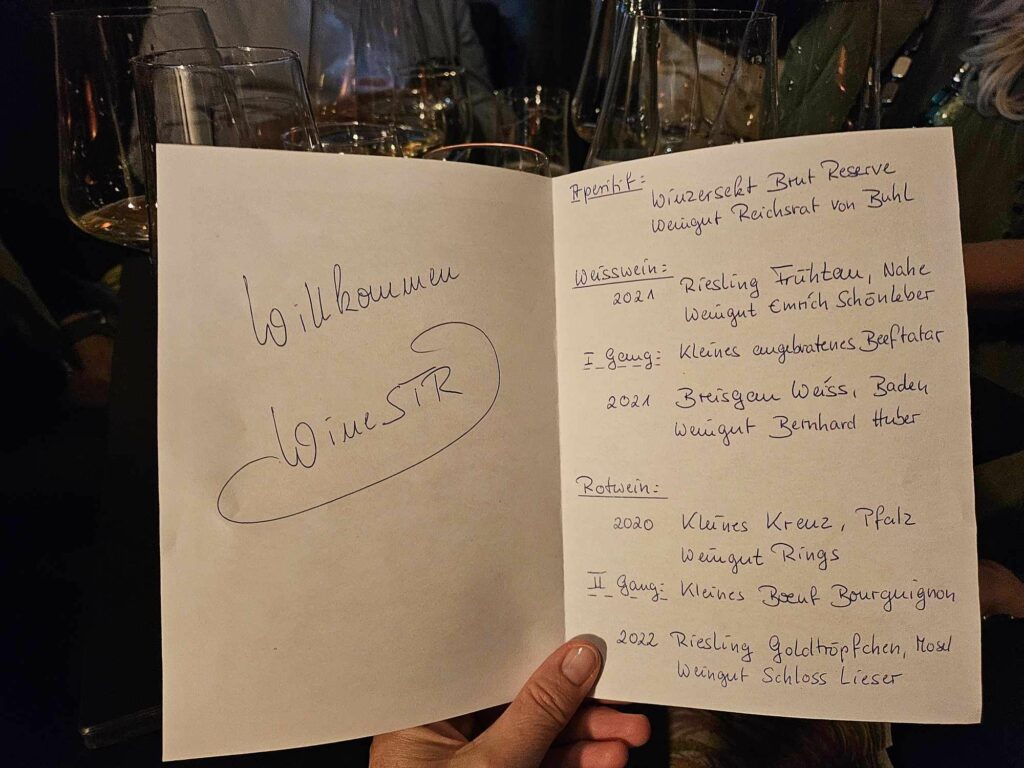 Willkommen
WineSTR
Aperitif:
Winzersekt Brut Reserve
Weingut Reichsrat von Buhl
Weisswein:
2021 Riesling Frühtau, Nahe
Weingut Emrich Schönleber
I Gang: Kleines angebratenes Beeftatar
2021 Breisgau Weiss, Baden
Weingut Bernhard Huber
Rotwein:
2020 Kleines Kreuz, Pfalz
Weingut Rings
II Gang: Kleines Bœuf Bourguignon
2022 Riesling Goldtröpfchen, Mosel
Weingut Schloss Lieser